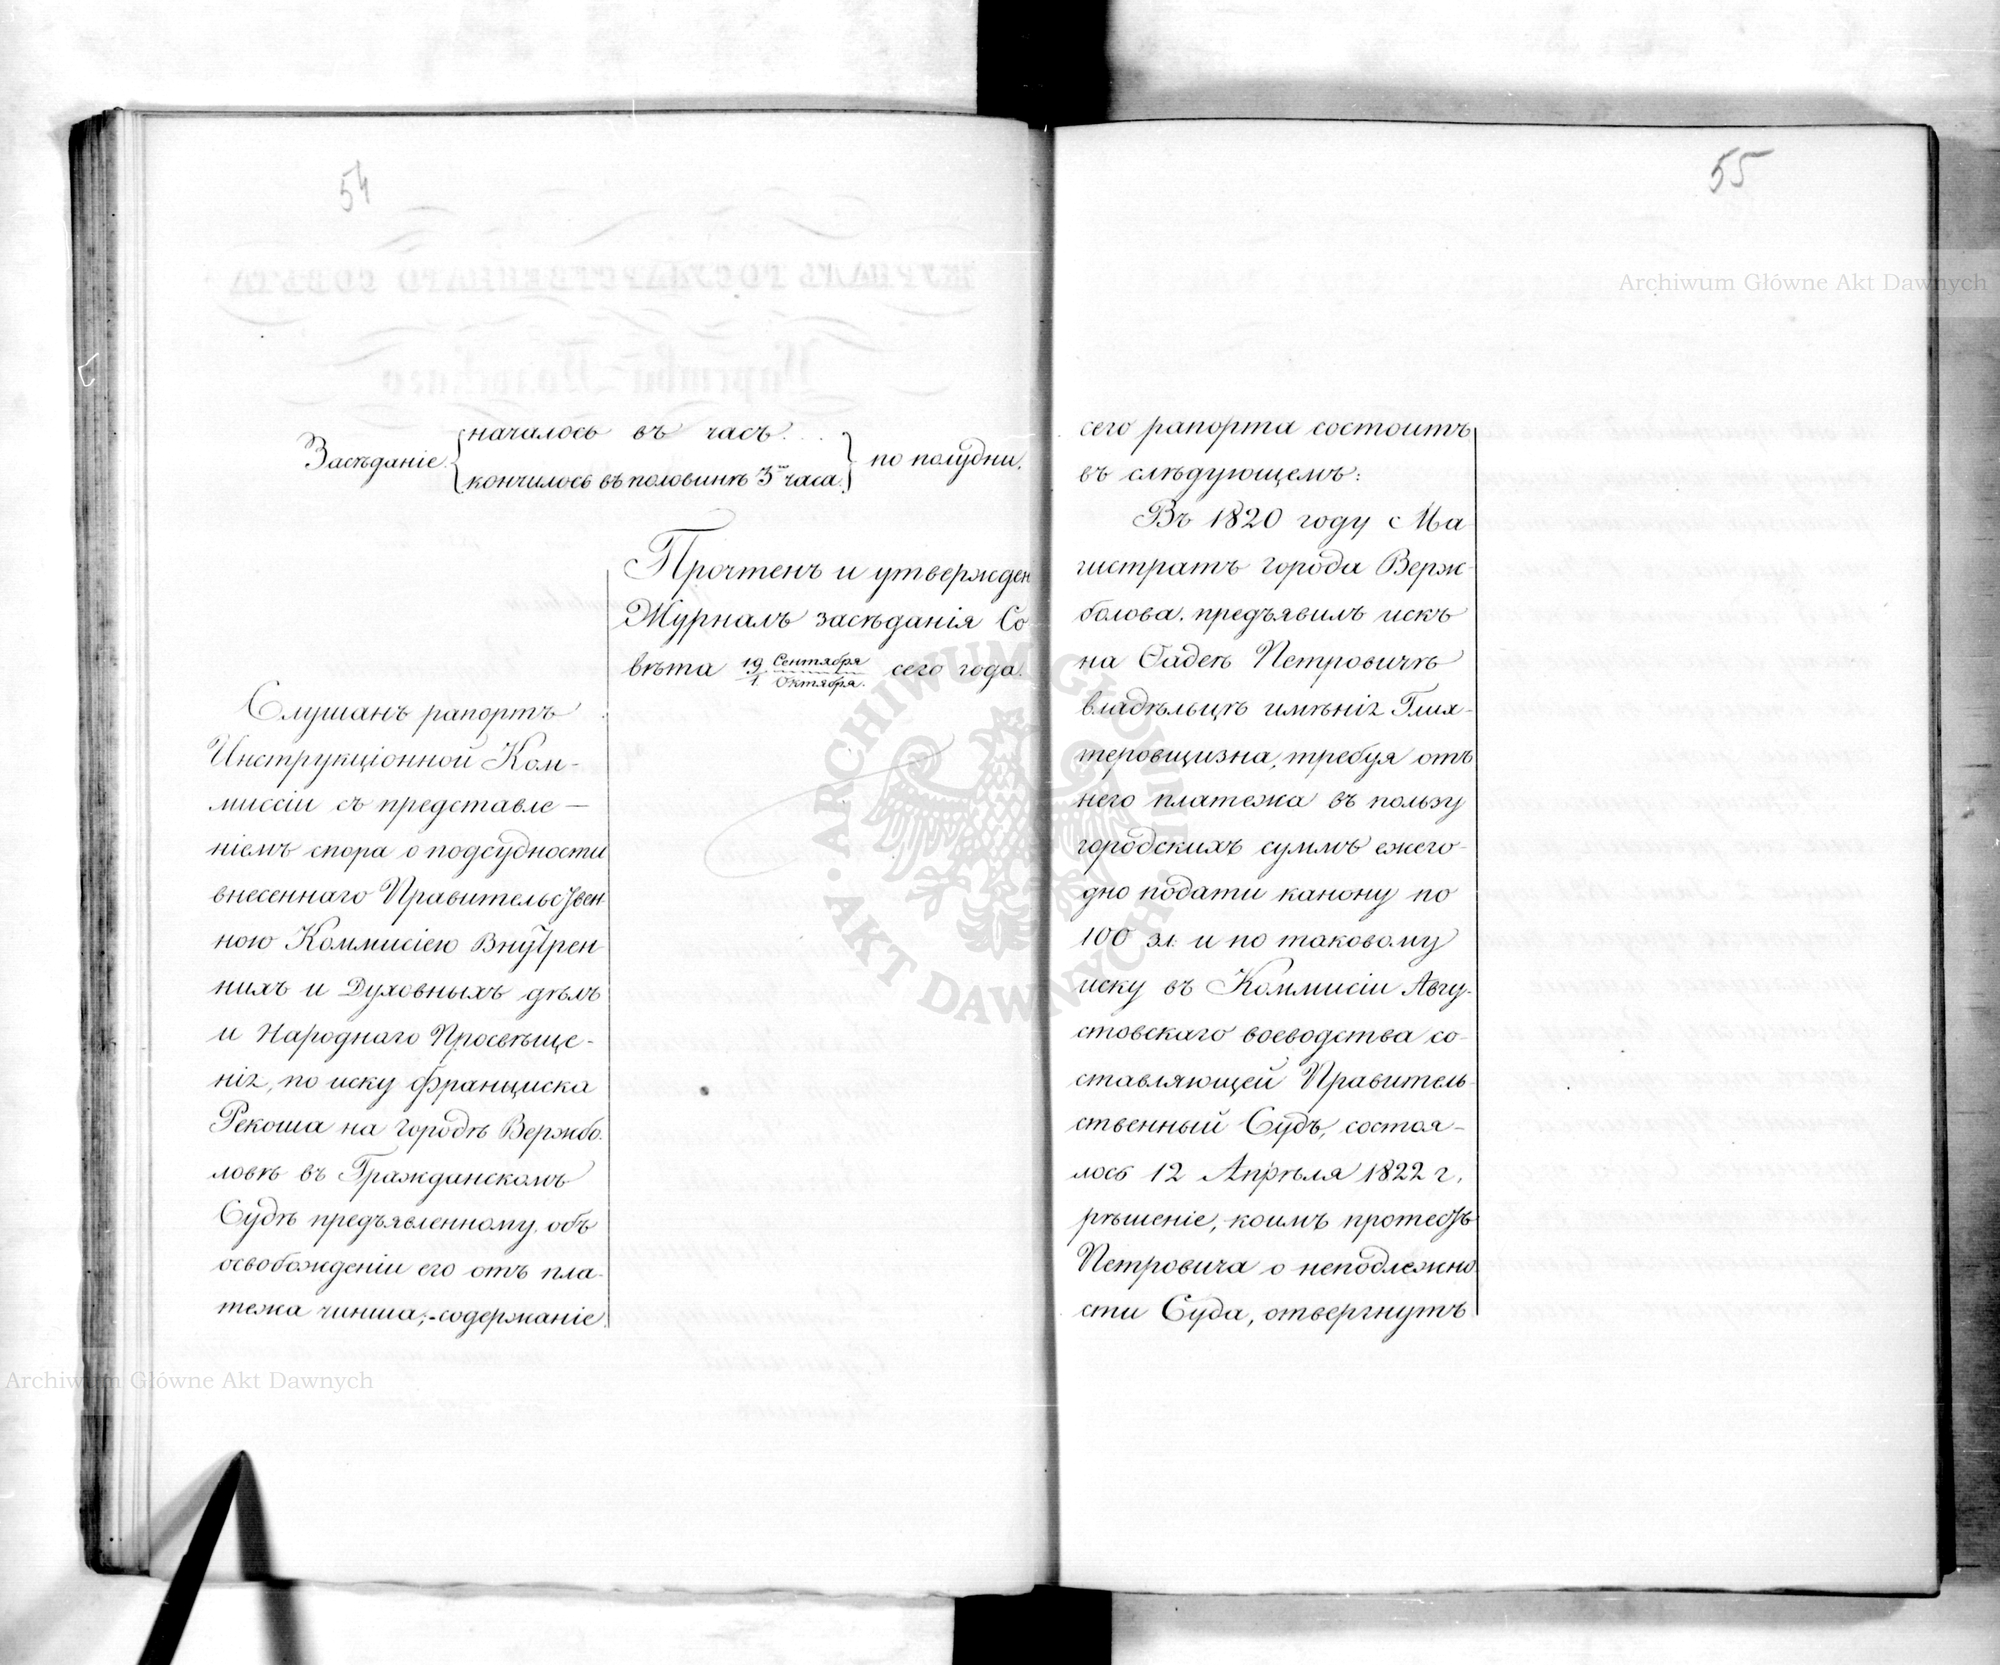 54
Засѣданіе
началось въ часъ
кончилось въ половинѣ 3го часа
по полудни.
Прочтенъ и утвержден
Журналъ засѣданія Со
вѣта 19 Сентября / 1 Октября сего года.
Слушанъ рапортъ
Инструкціонной Ком-
миссіи съ представле—
ніемъ спора о подсудности
внесеннаго Правительствен
ною Коммисіею Внутрен
нихъ и Духовныхъ дѣлъ
и Народнаго Просвѣще-
нія, по иску Франциска
Рекоша на городѣ Вержбо
ловѣ въ Гражданскомъ
Судѣ предъявленному, объ
освобожденіи его отъ пла-
тежа чинша;-содержаніе
55
сего рапорта состоитъ
въ слѣдующемъ:
Въ 1820 году Ма
гистратъ города Верж-
болова, предъявилъ искъ
на Ѳадеѣ Петровичѣ
владѣльцѣ имѣнія Глих-
теровщизна, требуя отъ
него платежа въ пользу
городскихъ суммъ ежего-
дно подати канону по
100 зл. и по таковому
иску въ Коммисіи Авгу-
стовскаго воеводства со-
ставляющей Правитель-
ственный Судъ, состоя-
лось 12 Апрѣля 1822 г.
рѣшеніе, коимъ протестъ
Петровича о неподлежно
сти Суда, отвергнутъ
Archiwum Główne Akt Dawnych
Archiwum Główne Akt Dawnych
ARCHIWUM GŁÓWNE AKT DAWNYCH
ЖУРНАЛЪ ГОСУДАРСТВЕННАГО СОВѢТА
Царства Польскаго